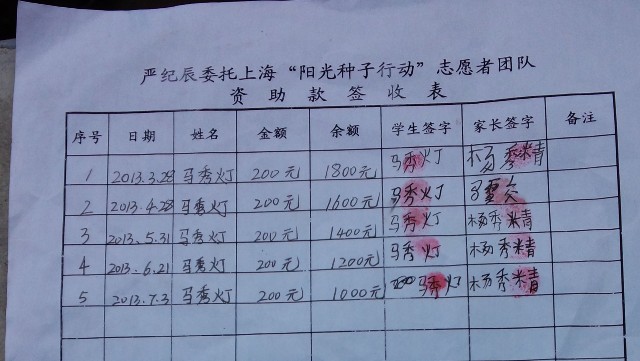 严纪辰委托上海“阳光种子行动”志愿者团队
资助款签收表
序号 日期 姓名 金额 余额 学生签字 家长签字 备注
1 2013.3.28 马秀灯 200元 1800元 马秀灯 杨秀精
2 2013.4.28 马秀灯 200元 1600元 马秀灯
3 2013.5.31 马秀灯 200元 1400元 马秀灯 杨秀精
4 2013.6.21 马秀灯 200元 1200元 马秀灯 杨秀精
5 2013.7.3 马秀灯 200元 1000元 马秀灯 杨秀精